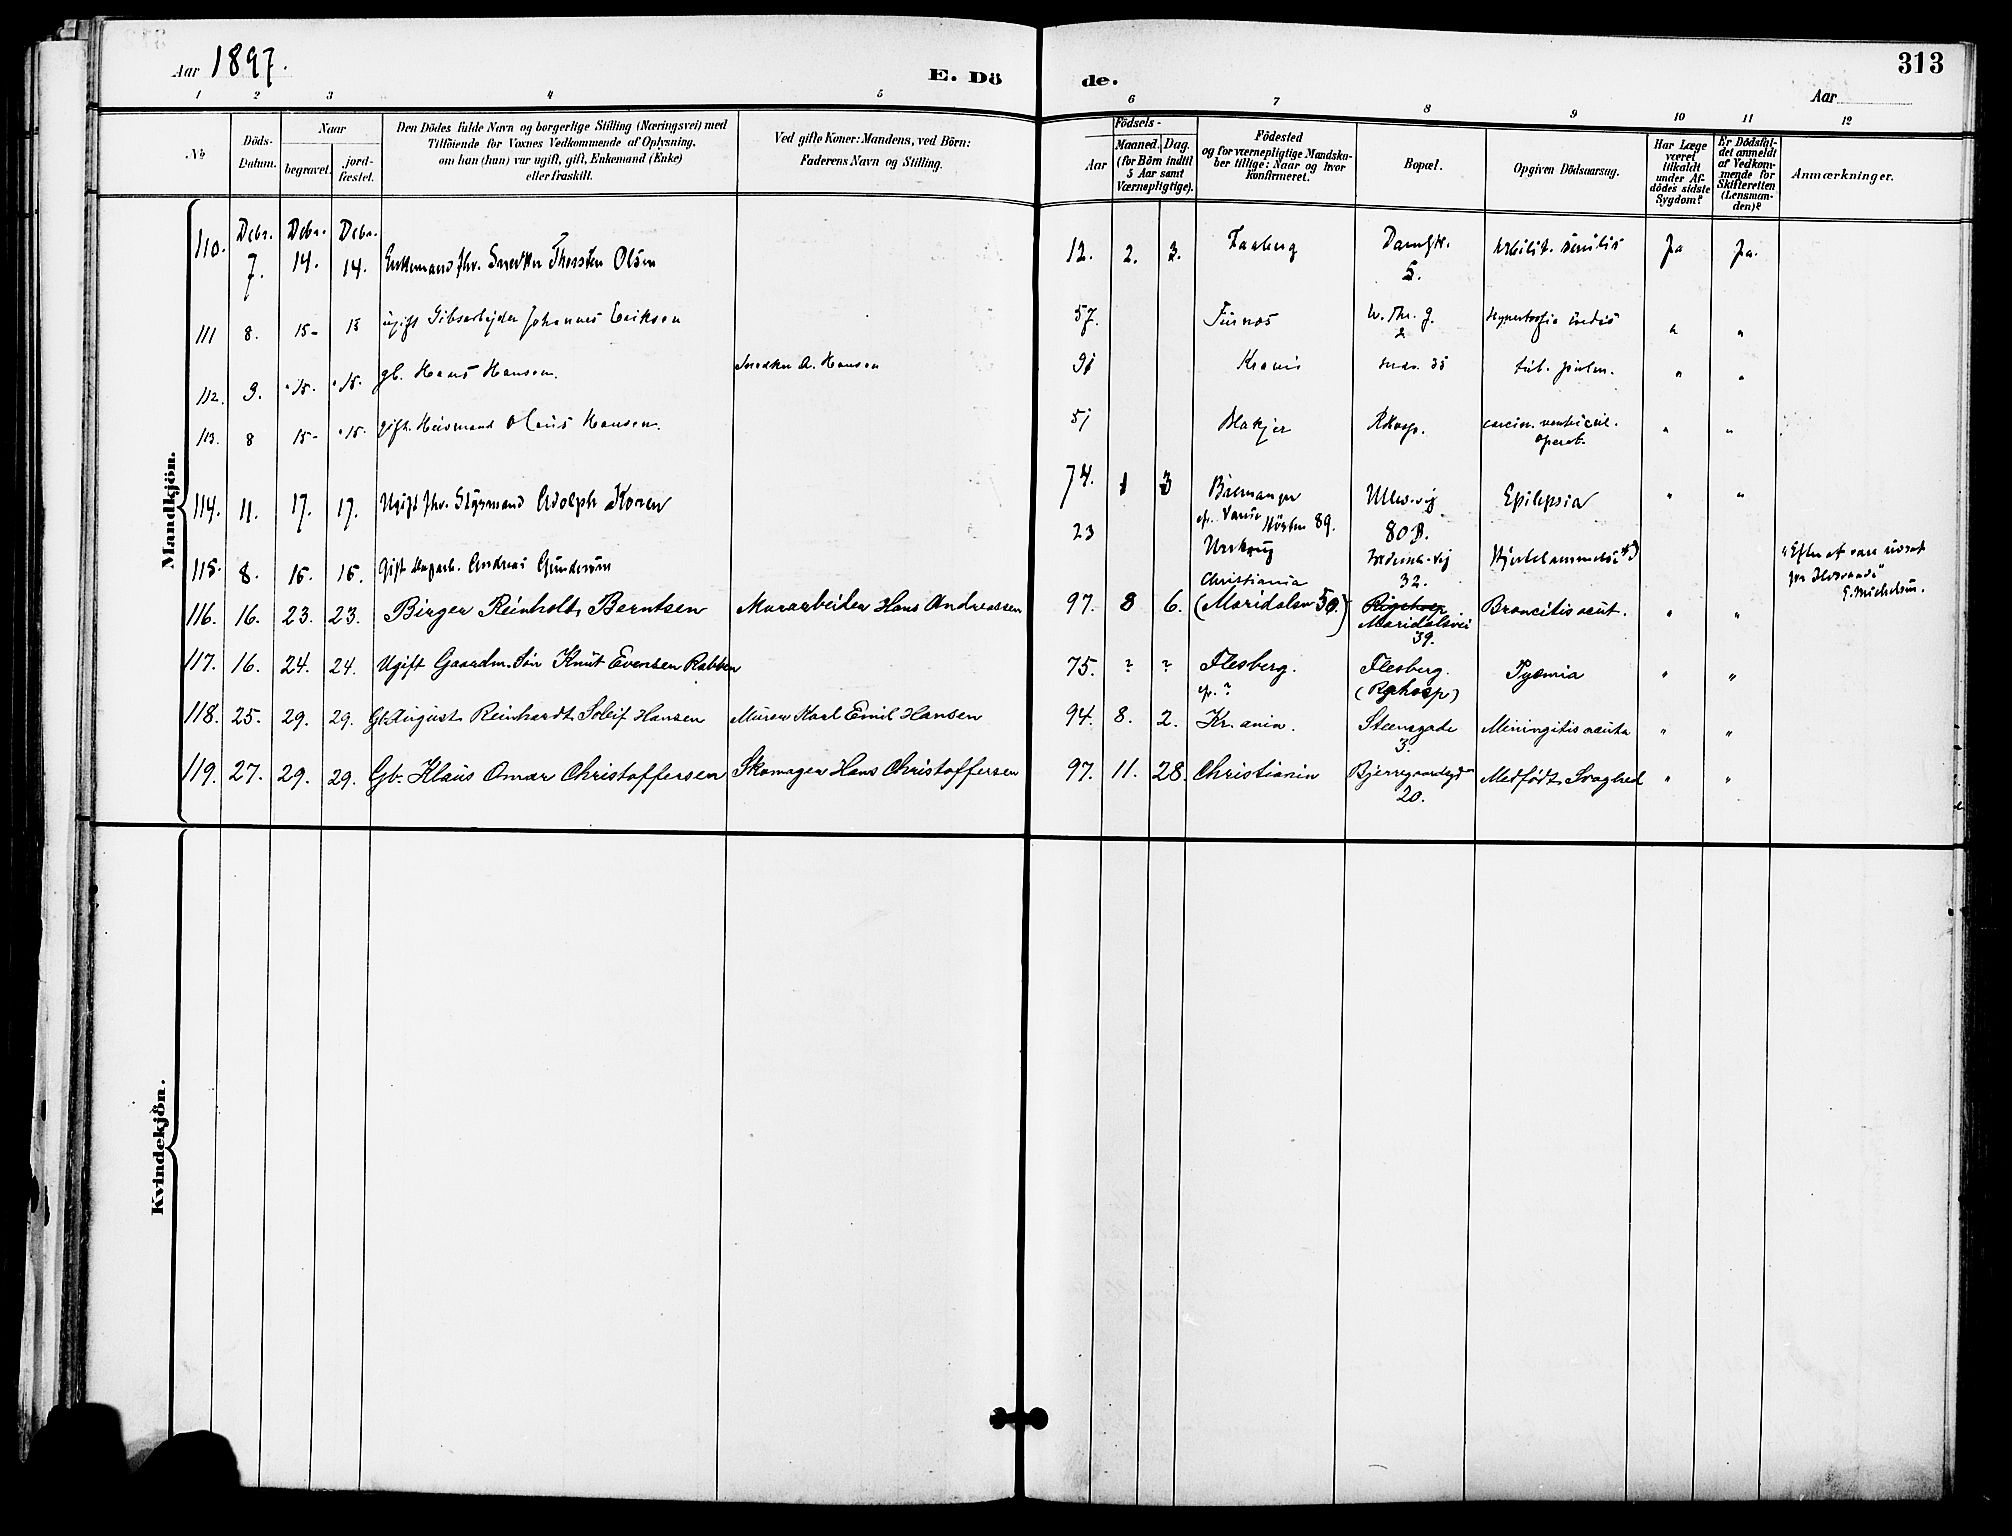 Aar 1897.
E. Dö de.
313
Aar
1 2 3 4 5 6 7 8 9 10 11 12
No
Döds-Datum.
Naar
begravet.
jord-fæstet.
Den Dödes fulde Navn og borgerlige Stilling (Næringsvei) med
Tilföiende for Voxnes Vedkommende af Oplysning,
om han (hun) var ugift, gift, Enkemand (Enke)
eller fraskilt.
Ved gifte Koner: Mandens, ved Börn:
Faderens Navn og Stilling.
Födsels-
Aar
Maaned. Dag.
(for Börn indtil
5 Aar samt
Værnepligtige).
Födested
og for værnepligtige Mandska-
ber tillige: Naar og hvor
konfirmeret.
Bopæl.
Opgiven Dödsaarsag.
Har Læge
været
tilkaldt
under Af-
dödes sidste
Sygdom?
Er Dödsfal-
det anmeldt
af Vedkom-
mende for
Skifteretten
(Lensman-
den)?
Anmærkninger.
Mandkjön.
Debr. Debr. Debr.
110. 7. 14. 14. Enkemand fhv. Snedker Thorsten Olsen 12. 2. 3. Faaberg Damstr. 5. debilit. senilis Ja Ja.
111 8. 15- 15 ugift Gibsarbejder Johannes Erikson 57. Furnes W. Thr. g. 2 " "
112. 9. "15. "15. gb. Hans Hansen. Snedker A. Hansen 91 Krania 35 tub. pulm. " "
113. 8 15- "15- gift. Huusmand Olaus Hansen. 51 Blakjer Rhosp. carcin. ventricul. operat. " "
114. 11. 17. 17. Ugift fhv. Styrmand Adolph Koren 74. 1 3 Ullev.vej 80 B. Epilepsia " "
115. 8. 15. 15. Gift Dagarb. Andreas Gunderson 23 Urskoug 32. Hjertelammelse *)
"Efter at være udsat
116. 16. 23. 23. Birger Reinholdt Berntsen Murarbeider Hans Andreassen 97. 8 6. Christiania (Maridalsv 50.) Rigshosp. Maridalsvei 39. Broncitis acut. " "
117. 16. 24. 24. Ugift Gaardm. Søn Knut Evensen Rabben 75. ? ? Flesberg. cf. ? Flesberg. (Rghosp) Pyæmia " "
118. 25. 29. 29. Gb. August Reinhardt Soleif Hansen Murer Karl Emil Hansen 94. 8. 2. Kr.ania. Steensgade 3. Miningitis acuta " "
119. 27. 29. 29. Gb. Klaus Omar Christoffersen Skomager Hans Christoffersen 97. 11. 28. Christiania Bjerregaardsgd 20. Medfødt Svaghed " "
Kvindekjön.